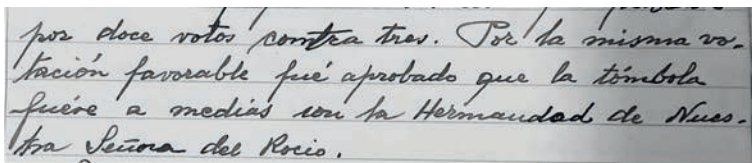 por doce votos contra tres. Por la misma vo-
tación favorable fué aprobado que la tómbola
fuére a medias con la Hermandad de Nues-
tra Señora del Rocio.